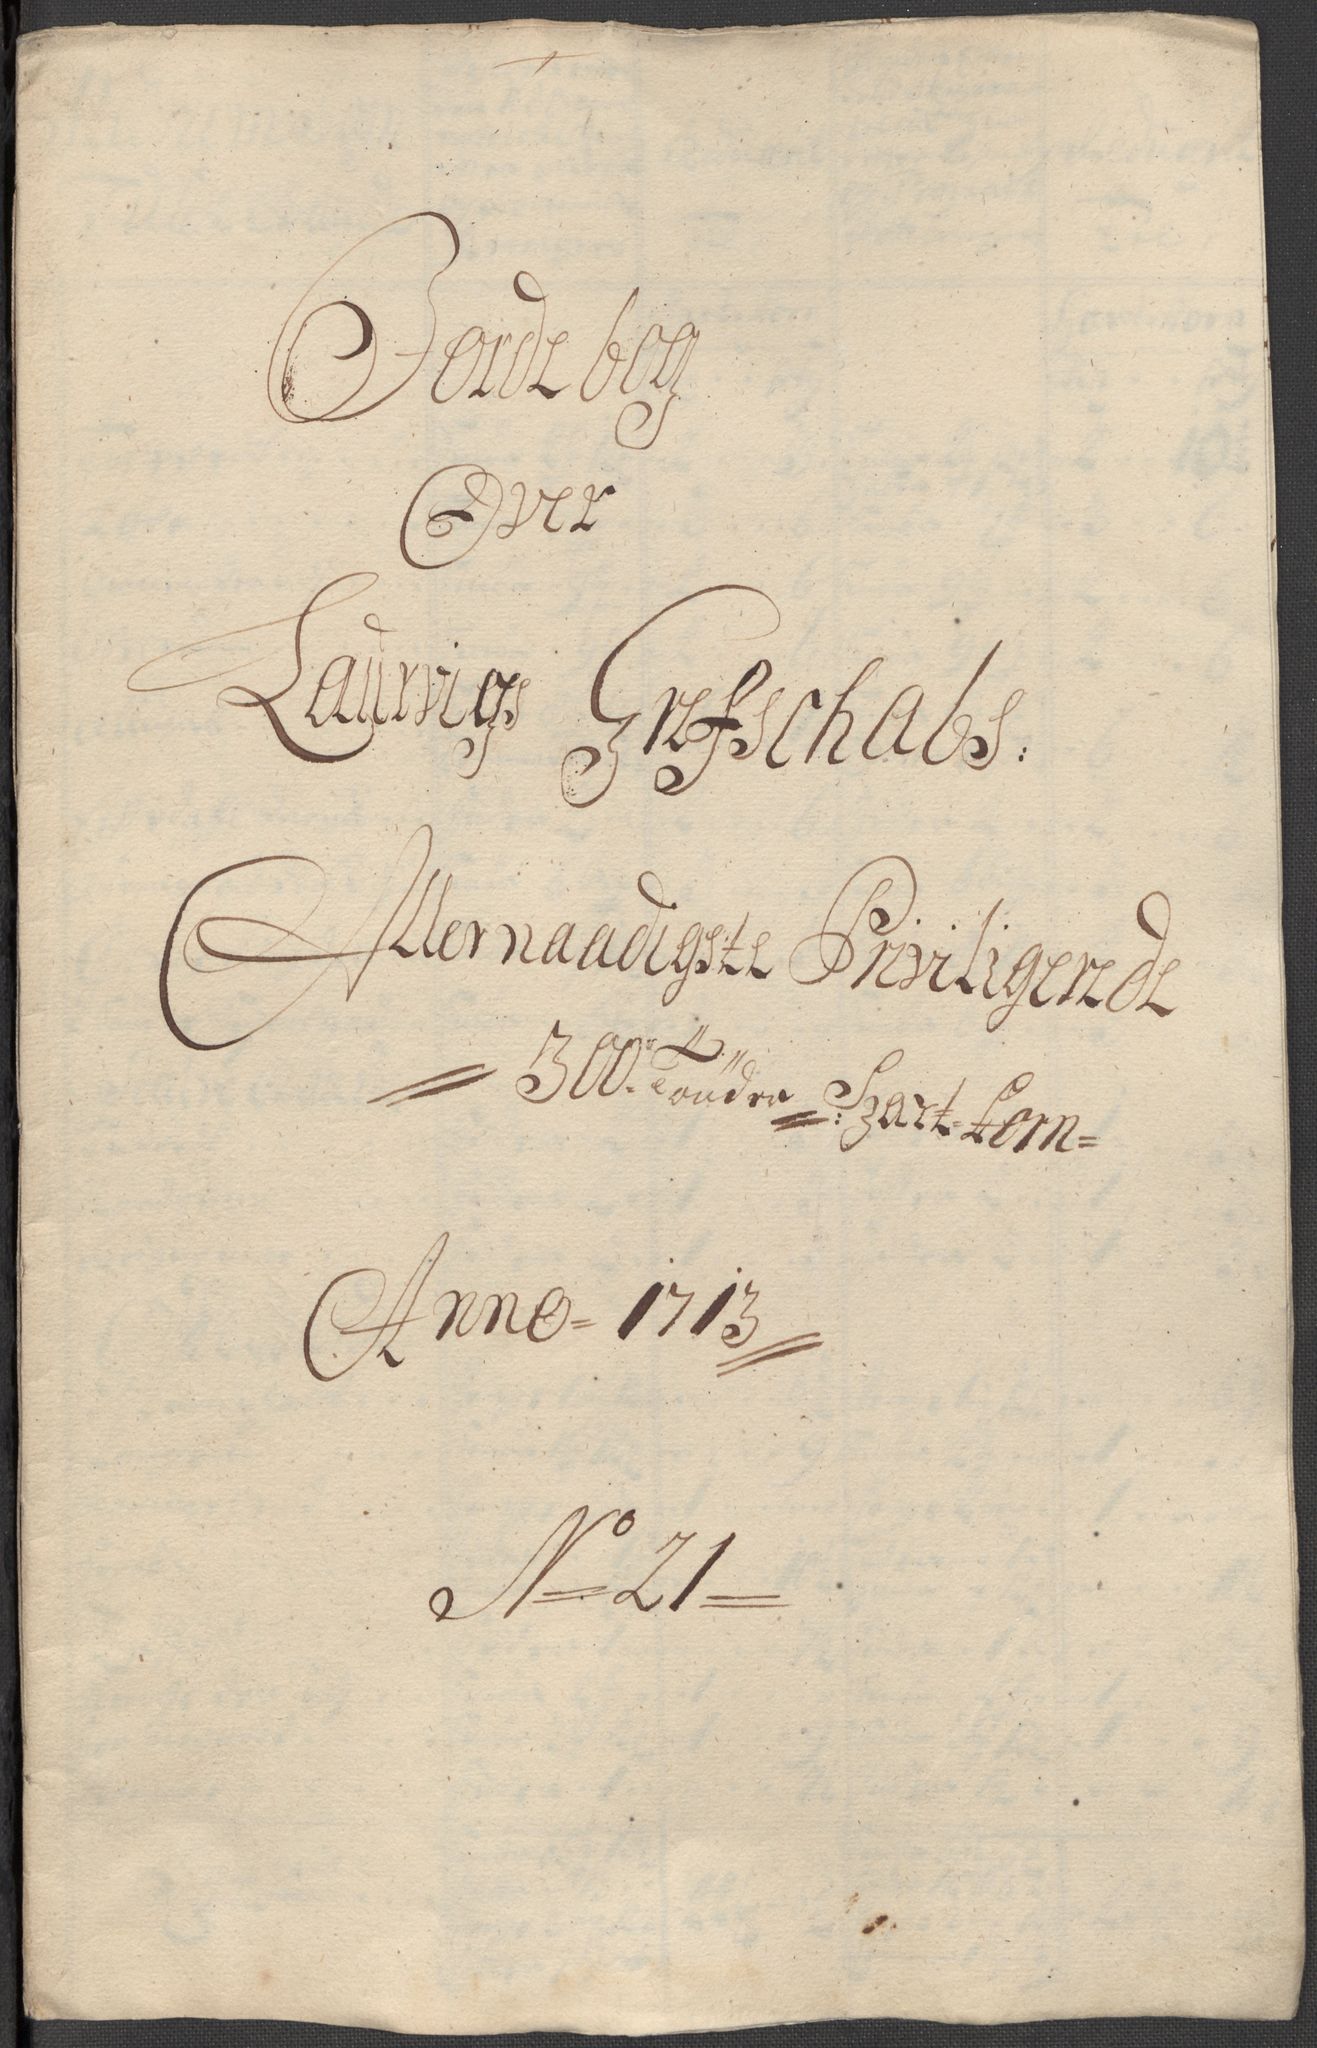 Jorde bog
Over
Laurvigs Grefschabs:
Allernaadigste Priviligerede
300 Tønder Hart-Korn=
Anno= 1713
No 21